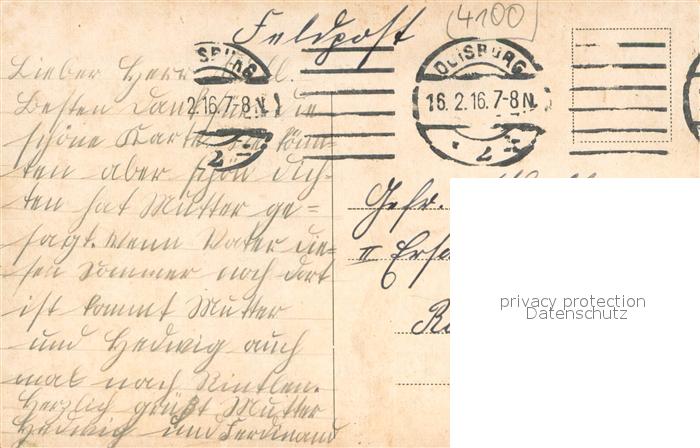 Feldpost
(4100)
DUISBURG
16.2.16.7-8N.
2
SBURG
2.16.7-8N.
2
Lieber Herr
Besten Dank für die
schöne Karte. Sie könn-
ten aber schön dich-
ten hat Mutter ge=
sagt. Wenn Vater die-
sen Sommer noch dort
ist kommt Mutter
und Hedwig auch
mal nach Rinteln.
Herzlich grüßt Mutter
Hedwig und Ferdinand
Gefr.
II Ers
privacy protection
Datenschutz